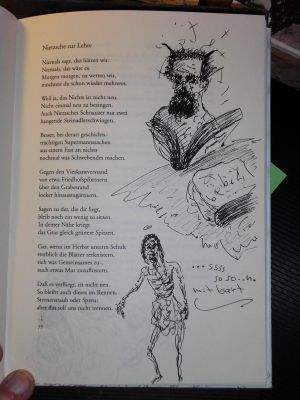 Nietzsche zur Lehre
Niemals sagt, das hätten wir.
Niemals, das wäre es.
Morgen morgen, na wetten wir,
möchtest du schon wieder mehreres.
Weil ja, das Nichts ist nicht neu.
Nicht einmal neu zu besingen.
Auch Nietzsches Schnauzer nur zwei
hangende Steinadlerschwingen.
Besser, bei derart geschichts-
trächtigen Supermannsachen
aus einem Fast an nichts
nochmal was Schwebendes machen.
Gegen den Vierkantverstand
von etwa Friedhofspforznern
über den Grabesrand
locker hinauszugärtnern.
Sagen zu der, die dir liegt,
bleib noch ein wenig so sitzen.
In deiner Nähe kriegt
das Gras gleich grünere Spitzen.
Gar, wenn im Herbst unseren Schuh
sterblich die Blätter zerknistern,
sich was Gemeinsames zu-
auch etwas Mut zuzuflüstern.
Daß es verfliegt, ist nicht neu.
So bleibt auch dieses im Rennen.
Sternenstaub oder Spreu:
aber das soll uns nicht trennen.
... ssss
so so
mit bart